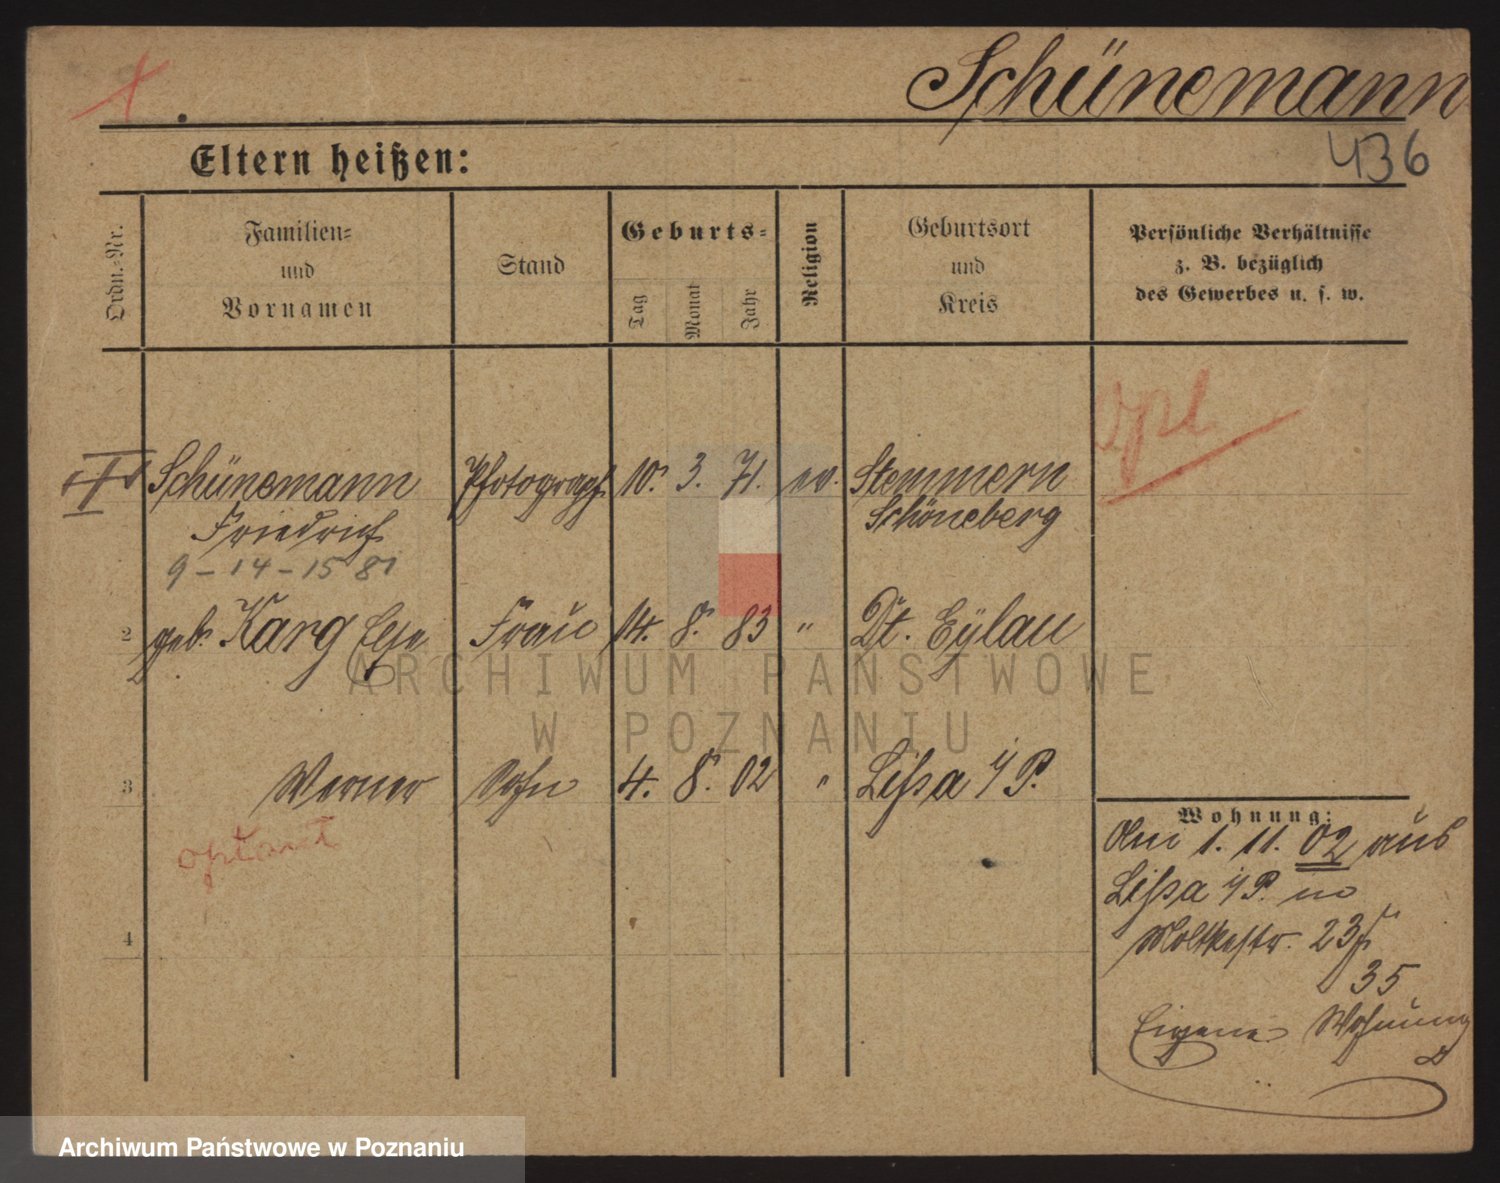 Schünemann
436
Eltern heißen:
Ordn.-Nr.
Familien-
und
Vornamen
Stand
Geburts-
Tag
Monat
Jahr
Religion
Geburtsort
und
Kreis
Persönliche Verhältnisse
z. B. bezüglich
des Gewerbes u. s. w.
Schünemann Photograph 10. 3. 71. ev. Stemmern
Friedrich Schöneberg
9-14-15 81
2 geb. Karg Else Frau 14. 8. 83 " Dt. Eylau
3 Werner Sohn 4. 8. 02 " Lissa i/P.
optant
4
opt.
Wohnung:
Am 1. 11. 02 aus
Lissa i/P. in
Moltkestr. 23
35
Eigene Wohnung
ARCHIWUM PAŃSTWOWE
W POZNANIU
Archiwum Państwowe w Poznaniu